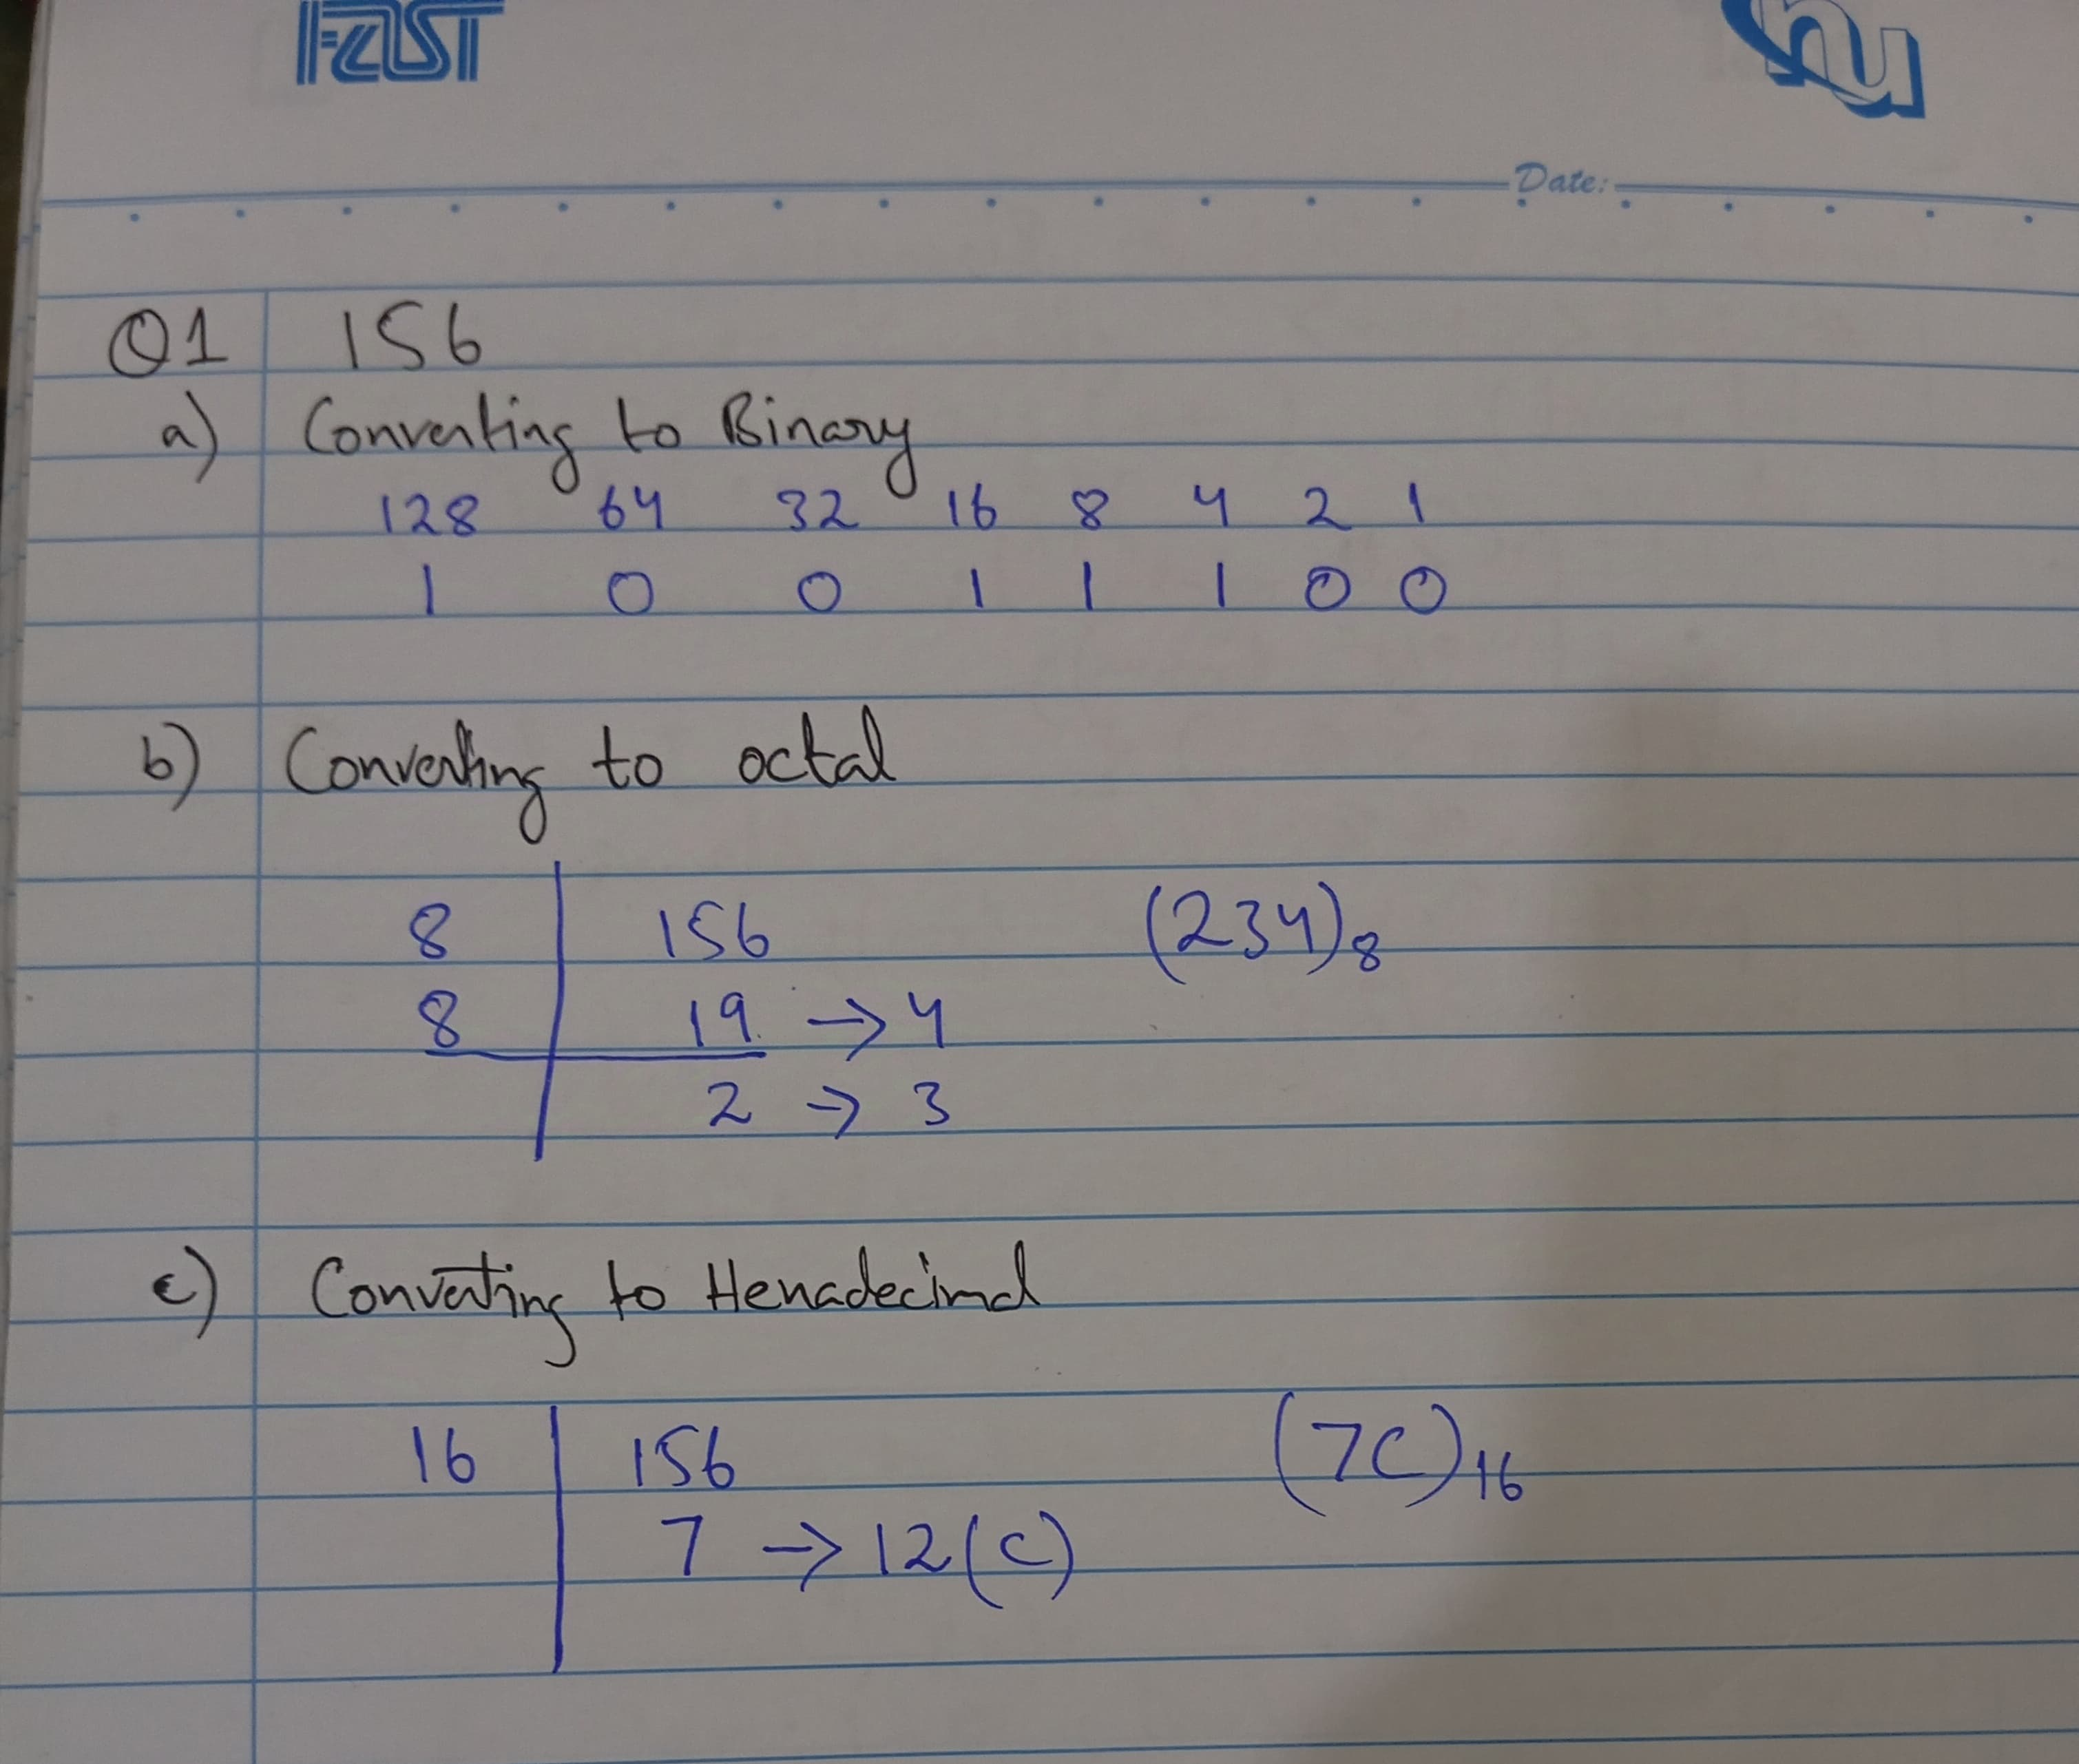 FAST nu
Date:
Q1 156
a) Converting to Binary
128 64 32 16 8 4 2 1
1 0 0 1 1 1 0 0
b) Converting to octal
8 156 (234)8
8 19 → 4
2 → 3
c) Converting to Henadecimal
16 156 (7C)16
7 → 12(C)